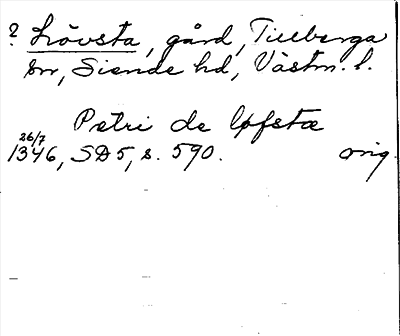 ? Lövsta, gård, Tillberga
sn, Siende hd, Västm. l.
Petri de løfstæ
26/7
1346, SD 5, s. 590. orig.